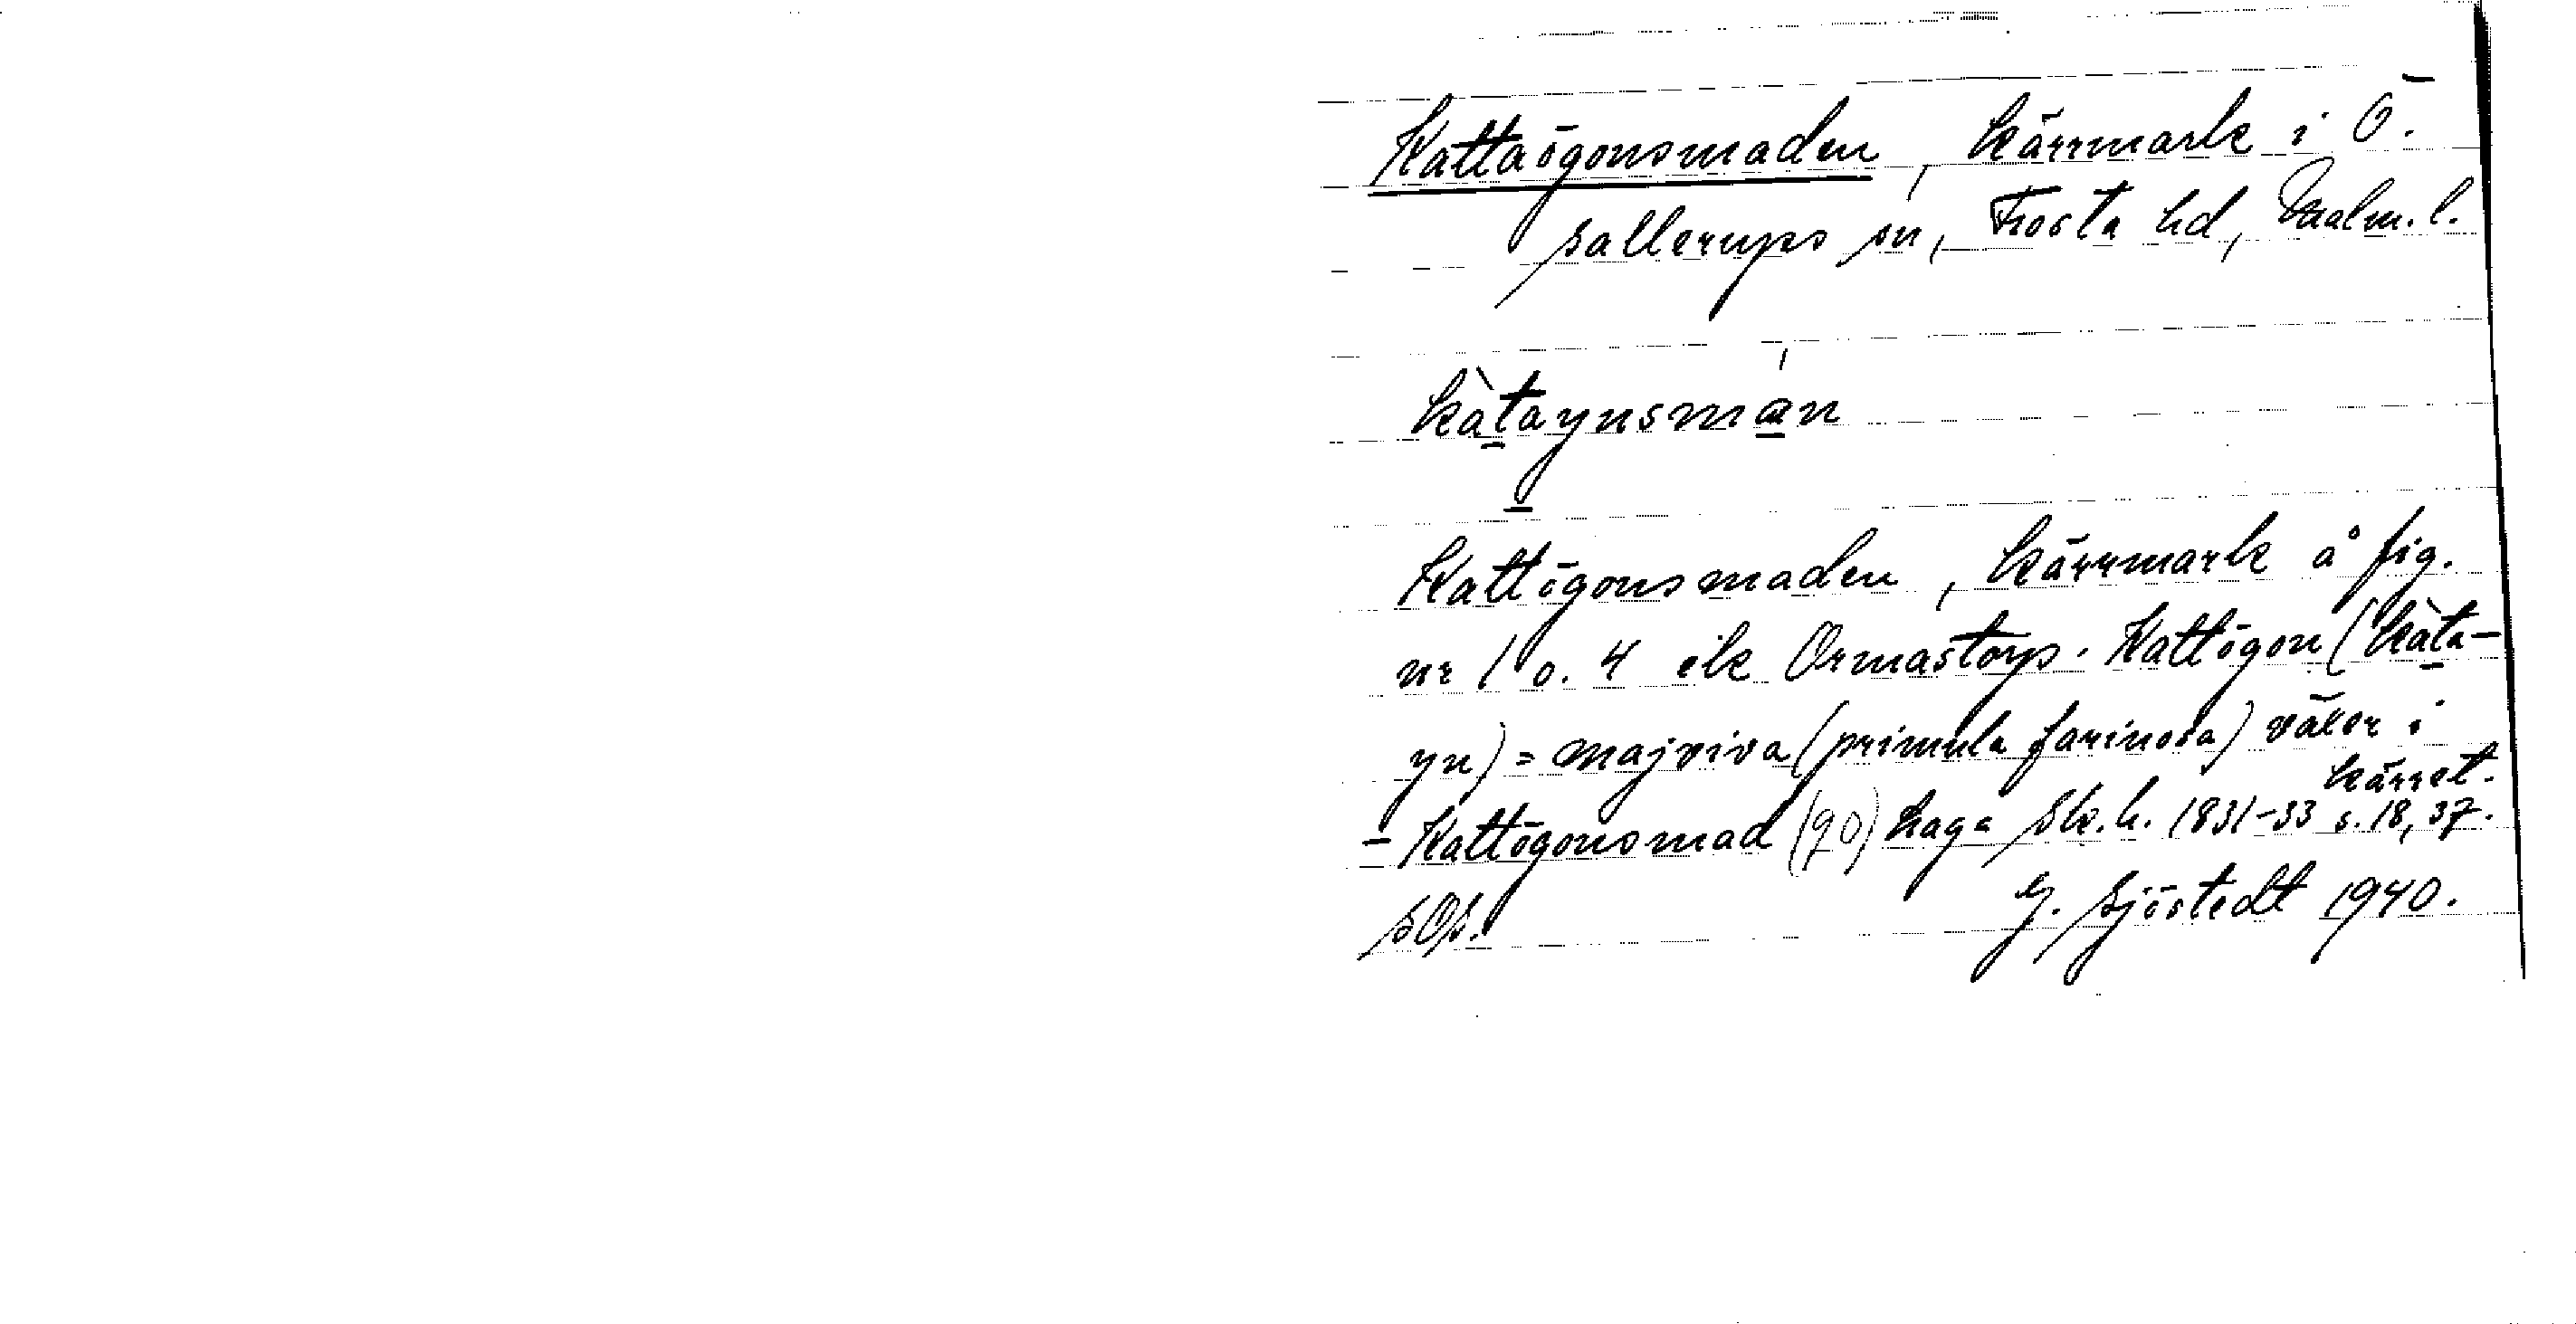 Kattaögonsmaden, kärrmark i Ö.
Sallerups sn, Frosta hd, Malm. l.
kàtaynsmán
Kattögonsmaden, kärrmark å fig.
nr 1 o. 4 ek Ormastorp. Kattögon (kàta-
yn) = majviva (primula farinosa) växer i
kärret.
- Kattögonsmad (90) haga Sk. h. 1831-33 s. 18, 37.
SOS. G. Sjöstedt 1940.